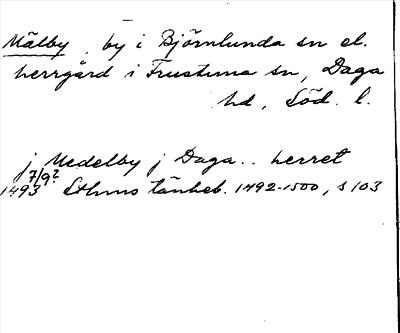 Mälby, by i Björnlunda sn el.
herrgård i Frustuna sn, Daga
hd, Söd. l.
j Medelby j Daga.. herret
7/9?
1493 Sthms tänkeb. 1492-1500, s 103